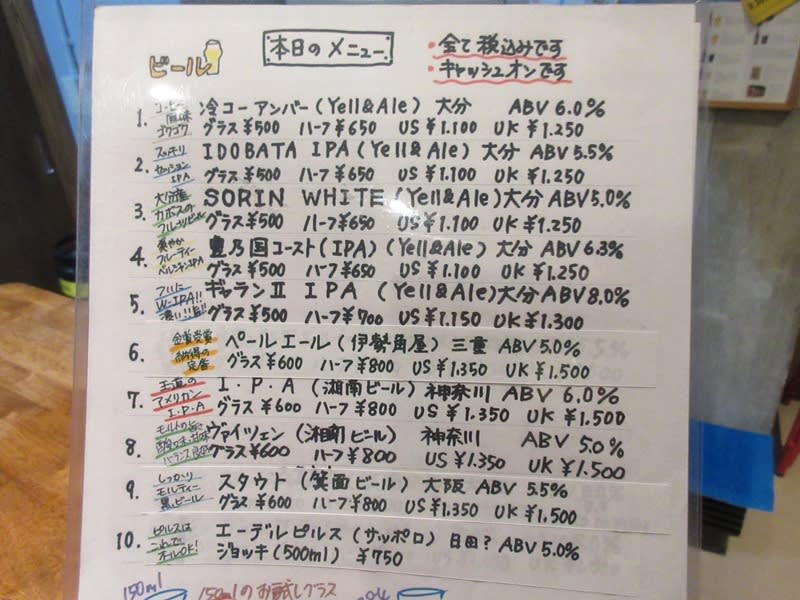 ビール
本日のメニュー
・全て税込みです
・キャッシュオンです
1. コーヒー風味ゴクゴク 冷コーアンバー(Yell&Ale) 大分 ABV 6.0%
グラス¥500 ハーフ¥650 US¥1.100 UK¥1.250
2. スッキリセッションIPA IDOBATA IPA (Yell&Ale) 大分 ABV 5.5%
グラス¥500 ハーフ¥650 US¥1.100 UK¥1.250
3. 大分産カボスのフルーツビール SORIN WHITE (Yell&Ale) 大分 ABV 5.0%
グラス¥500 ハーフ¥650 US¥1.100 UK¥1.250
4. 爽やかフルーティーベルジャンIPA 豊乃国コースト(IPA) (Yell&Ale) 大分 ABV 6.3%
グラス¥500 ハーフ¥650 US¥1.100 UK¥1.250
5. W-IPA!! 濃い!!旨!! ギャランⅡ IPA (Yell&Ale) 大分 ABV 8.0%
グラス¥500 ハーフ¥700 US¥1.150 UK¥1.300
6. 金賞受賞納得の定番 ペールエール (伊勢角屋) 三重 ABV 5.0%
グラス¥600 ハーフ¥800 US¥1.350 UK¥1.500
7. 王道のアメリカンI.P.A I.P.A (湘南ビール) 神奈川 ABV 6.0%
グラス¥600 ハーフ¥800 US¥1.350 UK¥1.500
8. ヴァイツェン (湘南ビール) 神奈川 ABV 5.0%
グラス¥600 ハーフ¥800 US¥1.350 UK¥1.500
9. しっかりモルティー黒ビール スタウト (箕面ビール) 大阪 ABV 5.5%
グラス¥600 ハーフ¥800 US¥1.350 UK¥1.500
10. ピルスはこれでオールOK! エーデルピルス (サッポロ) 日田? ABV 5.0%
ジョッキ(500ml) ¥750
150ml 150mlのお試しグラス